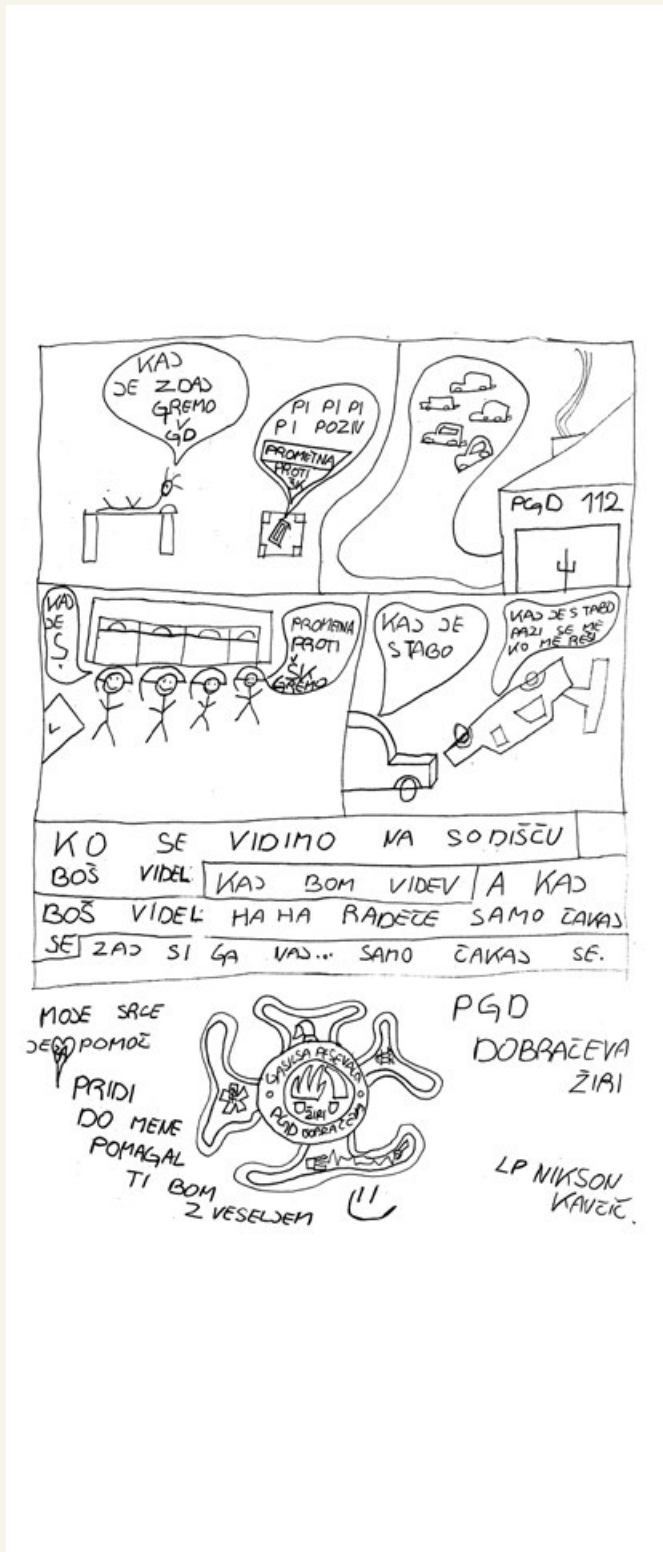 KAJ
JE ZDAJ
GREMO
V
GD
PI PI PI
PI POZIV
PROMETNA
PROTI
ŠK
PGD 112
KAJ
JE
Š.
PROMETNA
PROTI
ŠK
GREMO
KAJ JE
STABO
KAJ JE STABO
PAZI SE ME
KO ME REŠI
KO SE VIDIMO NA SODIŠČU
BOŠ VIDEL KAJ BOM VIDEV A KAJ
BOŠ VIDEL HA HA RADEČE SAMO ČAKAJ
SE ZAJ SI GA NAJ... SAMO ČAKAJ SE.
MOJE SRCE
JE ZA POMOČ
PRIDI
DO MENE
POMAGAL
TI BOM
Z VESELJEM
ŽIRI
PGD DOBRAČEVA
PGD
DOBRAČEVA
ŽIRI
LP NIKSON
KAVČIČ.